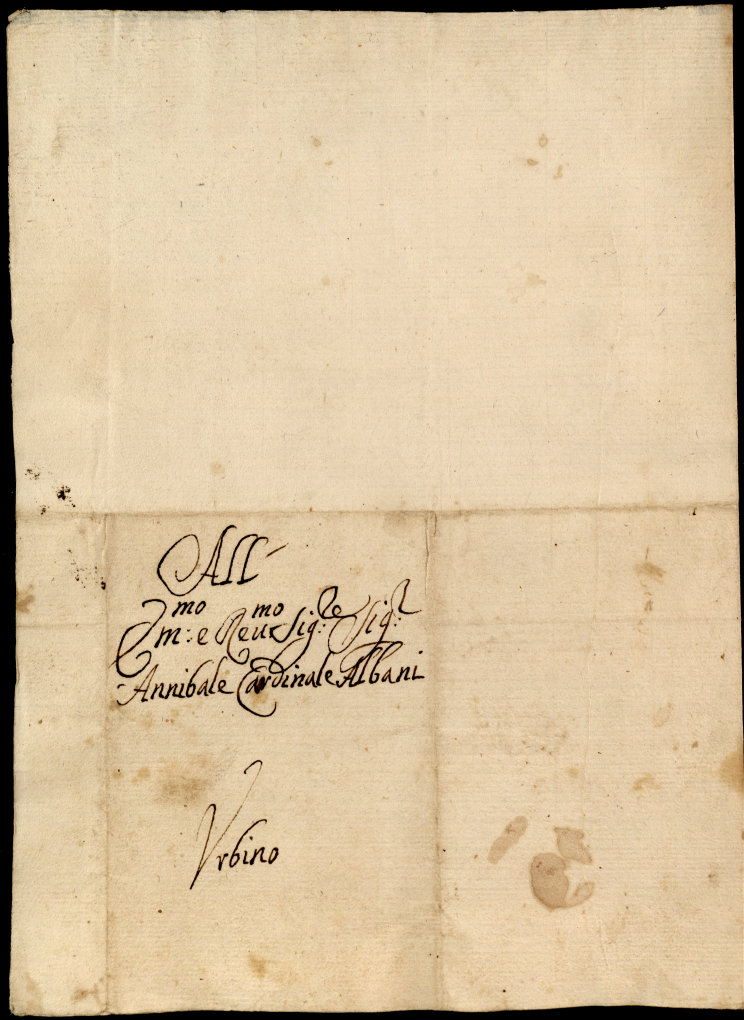 All'
Em:mo e Reu:mo Sig:re Sig:r
Annibale Cardinale Albani
Vrbino